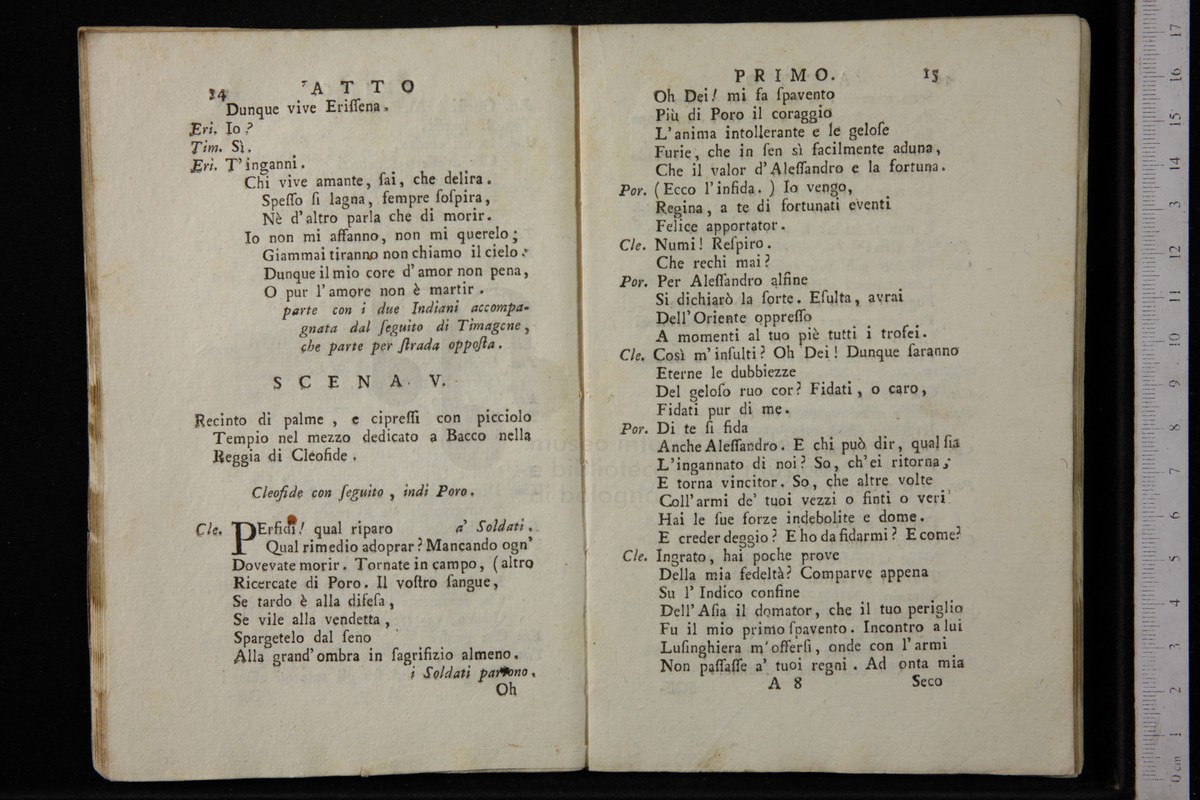 14 ATTO
Dunque vive Eriſſena.
Eri. Io?
Tim. Sì.
Eri. T'inganni.
Chi vive amante, ſai, che delira.
Speſſo ſi lagna, ſempre ſoſpira,
Nè d'altro parla che di morir.
Io non mi affanno, non mi querelo;
Giammai tiranno non chiamo il cielo:
Dunque il mio core d'amor non pena,
O pur l'amore non è martir.
parte con i due Indiani accompa-
gnata dal ſeguito di Timagene,
che parte per ſtrada oppoſta.
SCENA V.
Recinto di palme, e cipreſſi con picciolo
Tempio nel mezzo dedicato a Bacco nella
Reggia di Cleofide.
Cleofide con ſeguito, indi Poro.
Cle. PErfidi! qual riparo a' Soldati.
Qual rimedio adoprar? Mancando ogn'
Dovevate morir. Tornate in campo, (altro
Ricercate di Poro. Il voſtro ſangue,
Se tardo è alla difeſa,
Se vile alla vendetta,
Spargetelo dal ſeno
Alla grand'ombra in ſagrifizio almeno.
i Soldati partono.
Oh
PRIMO. 15
Oh Dei! mi fa ſpavento
Più di Poro il coraggio
L'anima intollerante e le geloſe
Furie, che in ſen sì facilmente aduna,
Che il valor d'Aleſſandro e la fortuna.
Por. (Ecco l'infida.) Io vengo,
Regina, a te di fortunati eventi
Felice apportator.
Cle. Numi! Reſpiro.
Che rechi mai?
Por. Per Aleſſandro alfine
Si dichiarò la ſorte. Eſulta, avrai
Dell'Oriente oppreſſo
A momenti al tuo piè tutti i trofei.
Cle. Così m'inſulti? Oh Dei! Dunque ſaranno
Eterne le dubbiezze
Del geloſo ruo cor? Fidati, o caro,
Fidati pur di me.
Por. Di te ſi fida
Anche Aleſſandro. E chi può dir, qual ſia
L'ingannato di noi? So, ch'ei ritorna;
E torna vincitor. So, che altre volte
Coll'armi de' tuoi vezzi o finti o veri
Hai le ſue forze indebolite e dome.
E creder deggio? E ho da fidarmi? E come?
Cle. Ingrato, hai poche prove
Della mia fedeltà? Comparve appena
Su l'Indico confine
Dell'Aſia il domator, che il tuo periglio
Fu il mio primo ſpavento. Incontro a lui
Luſinghiera m'offerſi, onde con l'armi
Non paſſaſſe a' tuoi regni. Ad onta mia
A 8 Seco